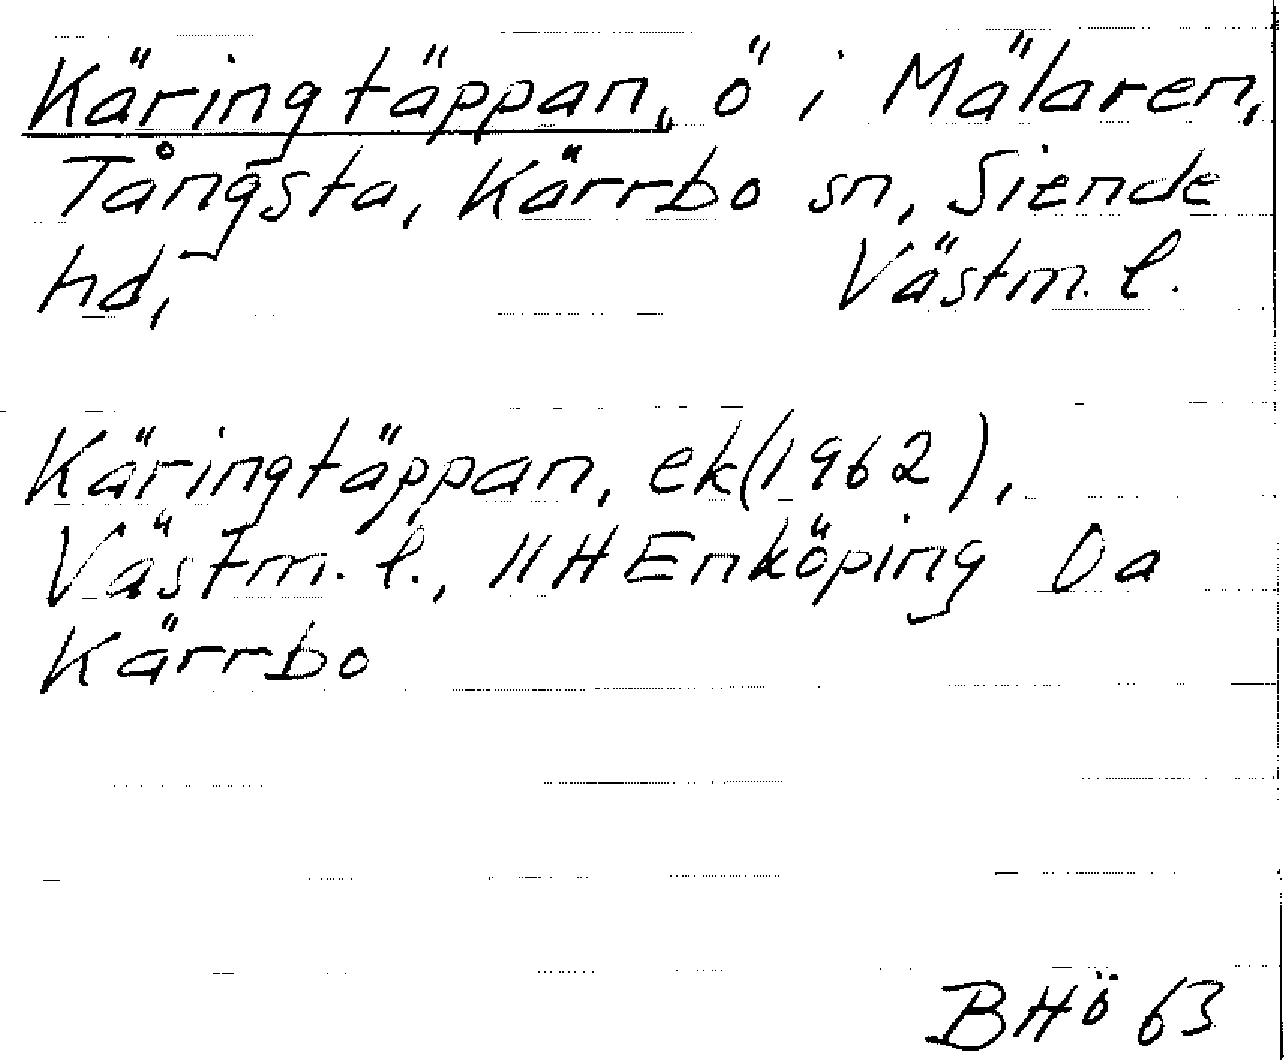 Käringtäppan, ö i Mälaren,
Tångsta, Kärrbo sn, Siende
hd, Västm. l.
Käringtäppan, ek(1962),
Västm. l., 11H Enköping 0a
Kärrbo
BHö 63